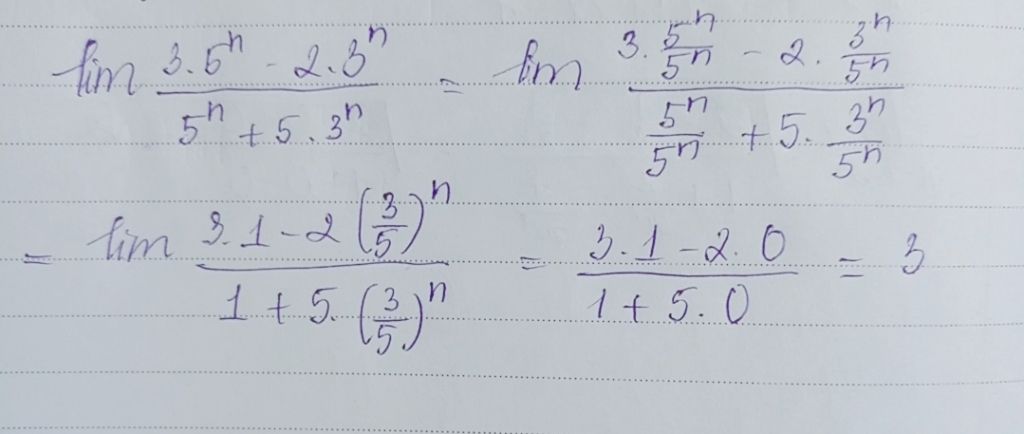 lim (3.5ⁿ - 2.3ⁿ)/(5ⁿ + 5.3ⁿ) = lim (3.5ⁿ/5ⁿ - 2.3ⁿ/5ⁿ)/(5ⁿ/5ⁿ + 5.3ⁿ/5ⁿ)
= lim (3.1 - 2(3/5)ⁿ)/(1 + 5.(3/5)ⁿ) = (3.1 - 2.0)/(1 + 5.0) = 3